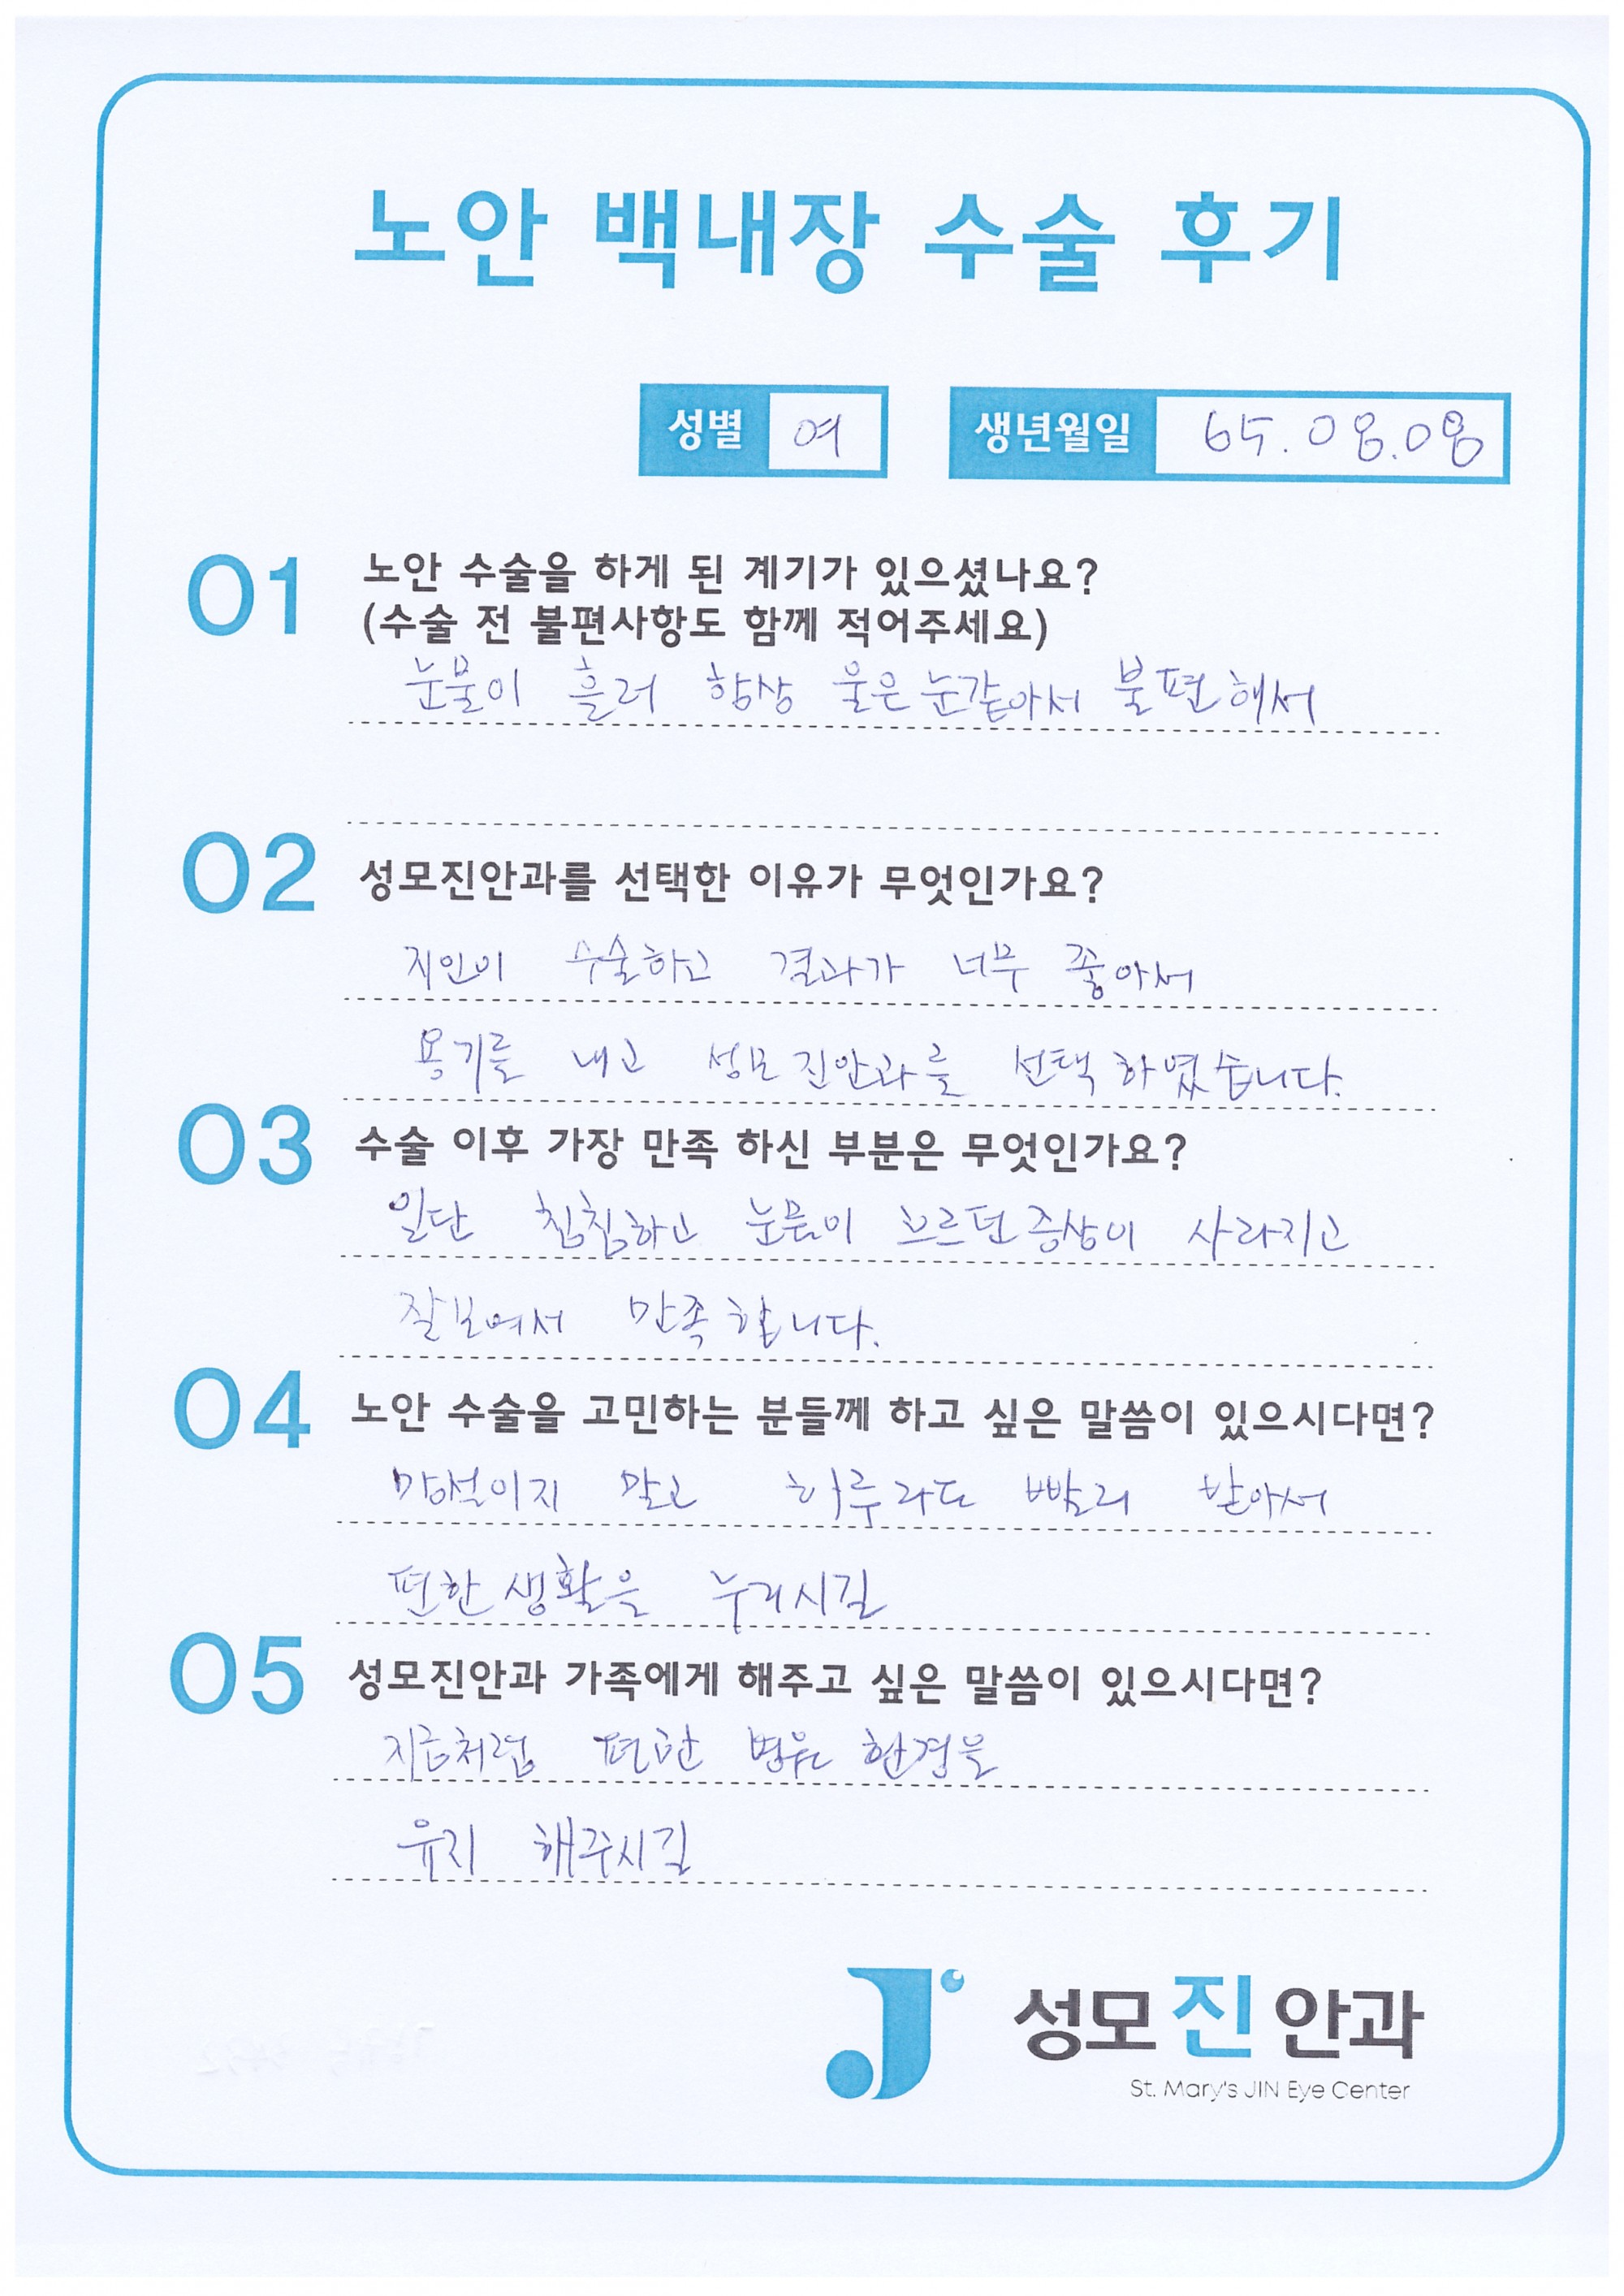 노안 백내장 수술 후기
성별 여 생년월일 65.08.08
01 노안 수술을 하게 된 계기가 있으셨나요?
(수술 전 불편사항도 함께 적어주세요)
눈물이 흘러 항상 울은 눈같아서 불편해서
02 성모진안과를 선택한 이유가 무엇인가요?
지인이 수술하고 결과가 너무 좋아서
용기를 내고 성모진안과를 선택하였습니다.
03 수술 이후 가장 만족 하신 부분은 무엇인가요?
일단 침침하고 눈물이 흐르던 증상이 사라지고
잘보여서 만족합니다.
04 노안 수술을 고민하는 분들께 하고 싶은 말씀이 있으시다면?
망설이지 말고 하루라도 빨리 받아서
편한 생활을 누리시길
05 성모진안과 가족에게 해주고 싶은 말씀이 있으시다면?
지금처럼 편한 병원 환경을
유지 해주시길
성모진안과
St. Mary's JIN Eye Center